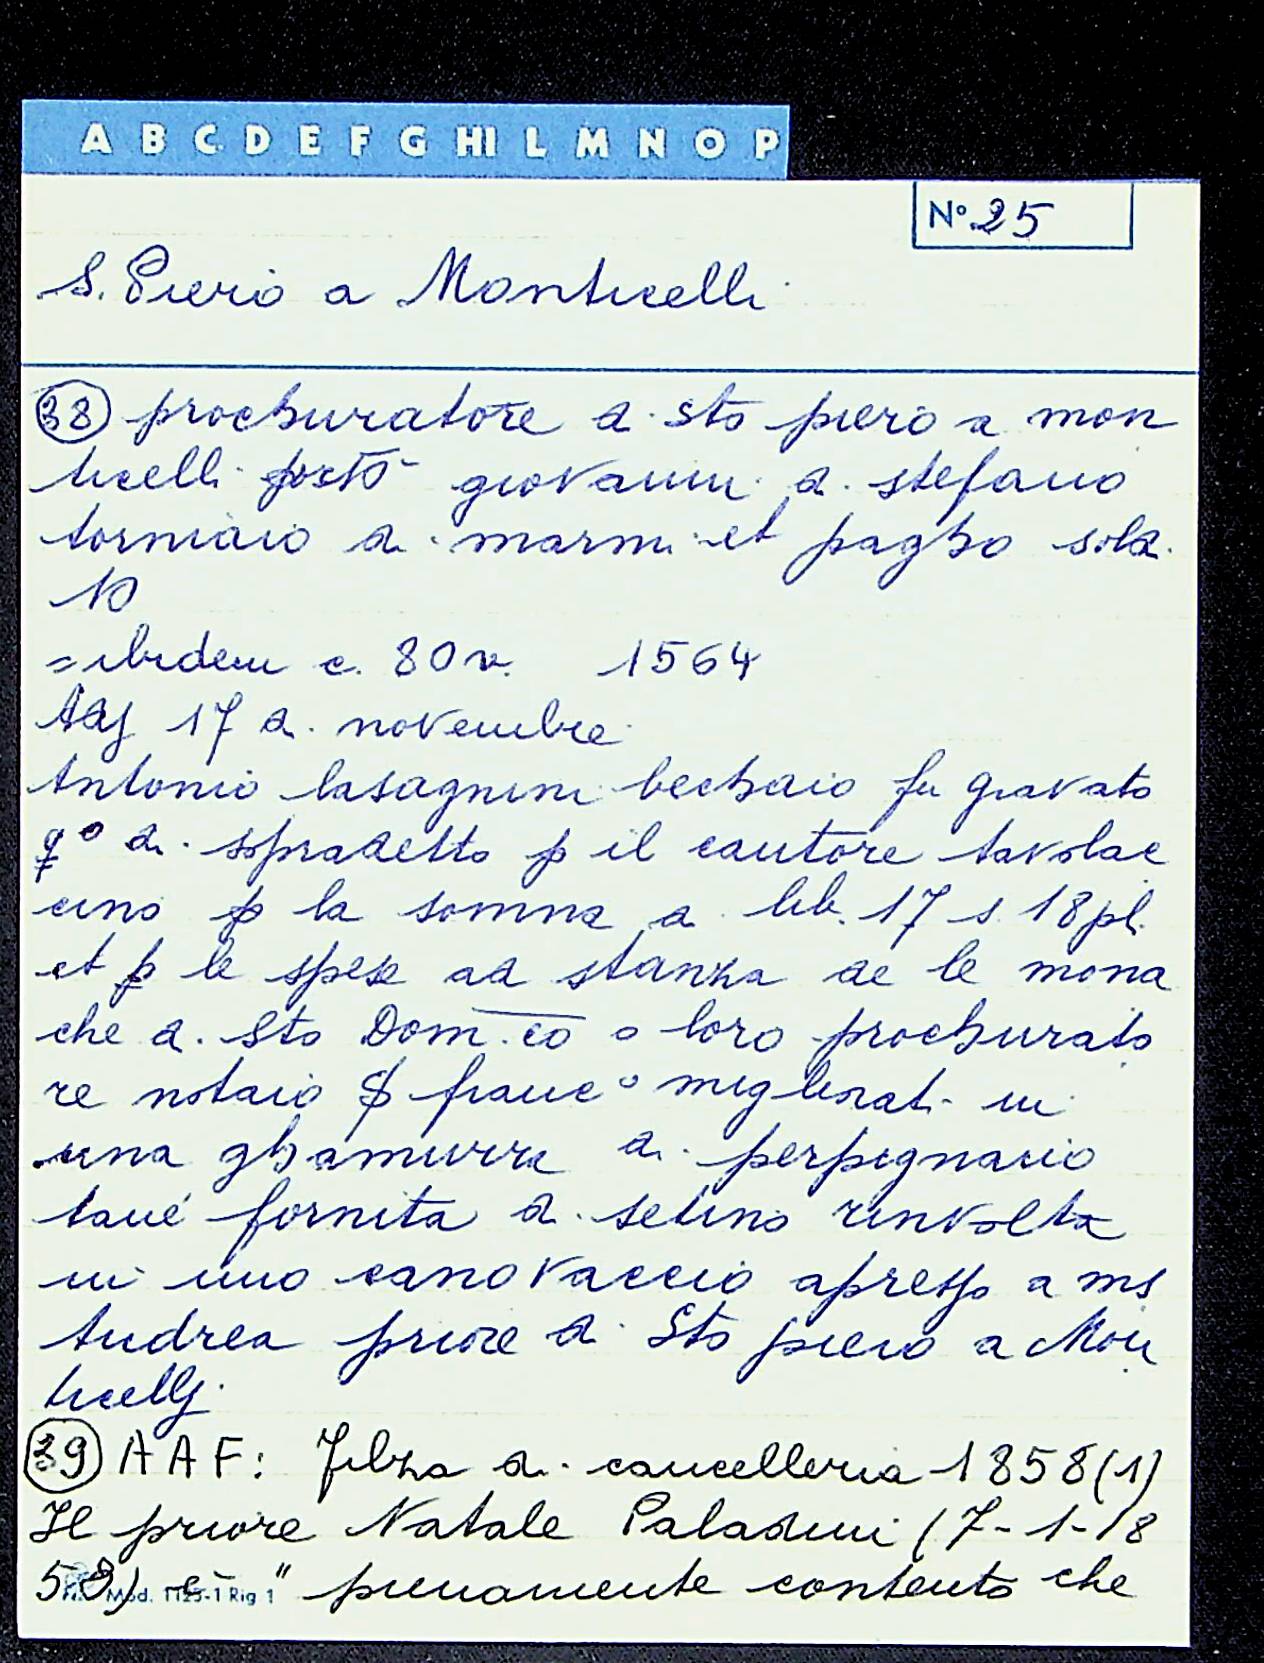 A B C D E F G HI L M N O P
N° 25
S. Piero a Monticelli
38 prochuratore di sto piero a mon
ticelli portò giovanni di stefano
torniaio di marmi et pagho sold.
10
= ibidem c. 80 v. 1564
Adj 17 di novembre
Antonio lasagnini bechaio fu gravato
qº di sopradetto p il cautore tavolac
cino p la somma di lib. 17 s. 18 pl.
et p le spese ad stanza de le mona
che di Sto Dom.co o loro prochurato
re notaio franc° migliorati in
una ghamurra di perpignano
tané fornita di setino rinvolta
in uno canovaccio apresso a ms
Andrea priore di Sto piero a Mon
ticellj.
39 A A F: Filza di cancelleria 1858 (1)
Il priore Natale Paladini (7-1-18
58) è "pienamente contento che
Mod. 1125-1 Rig 1